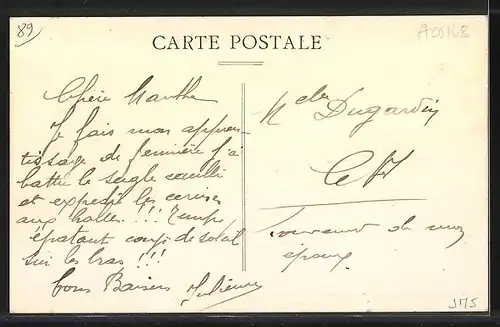 89
A05168
CARTE POSTALE
Chère Marthe
Je fais mon appren
tissage de fermière j'ai
battu le seigle cueilli
et expédié les cerises
aux halles !!! Temps
épatant coups de soleil
sur les bras !!!
bons Baisers Julienne
Dugardin
Souvenir de mes
époux
JM5